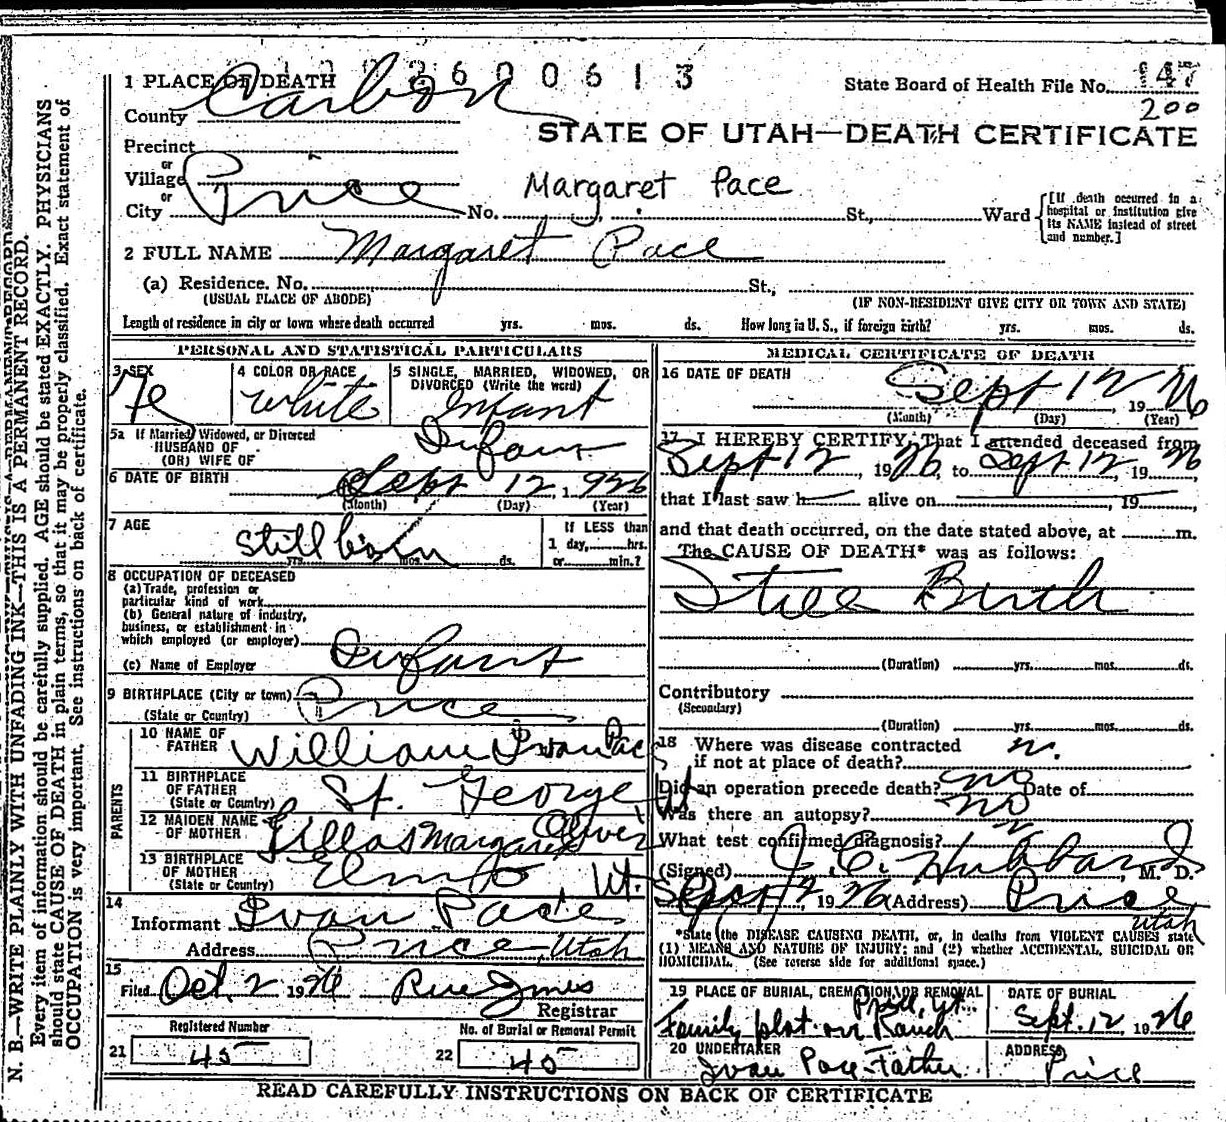 2600613
1 PLACE OF DEATH
State Board of Health File No. 147
200
County Carbon
STATE OF UTAH—DEATH CERTIFICATE
Precinct
or
Village
Margaret Pace
or
City Price No. St., Ward
[If death occurred in a hospital or institution give its NAME instead of street and number.]
2 FULL NAME Margaret Pace
(a) Residence. No. St.,
(USUAL PLACE OF ABODE) (IF NON-RESIDENT GIVE CITY OR TOWN AND STATE)
Length of residence in city or town where death occurred yrs. mos. ds. How long in U. S., if foreign birth? yrs. mos. ds.
PERSONAL AND STATISTICAL PARTICULARS
3 SEX Fe
4 COLOR OR RACE white
5 SINGLE, MARRIED, WIDOWED, OR
DIVORCED (Write the word)
Infant
5a If Married, Widowed, or Divorced
HUSBAND OF
(OR) WIFE OF
Infant
6 DATE OF BIRTH Sept 12, 1926
(Month) (Day) (Year)
7 AGE
Still born
yrs. mos. ds.
If LESS than
1 day, hrs.
or min.?
8 OCCUPATION OF DECEASED
(a) Trade, profession or
particular kind of work
(b) General nature of industry,
business, or establishment in
which employed (or employer)
(c) Name of Employer Infant
9 BIRTHPLACE (City or town)
(State or Country)
Price
PARENTS
10 NAME OF
FATHER William Ivan Pace
11 BIRTHPLACE
OF FATHER
(State or Country)
St. George Ut
12 MAIDEN NAME
OF MOTHER Margaret Oliver
13 BIRTHPLACE
OF MOTHER
(State or Country)
Elmo Ut.
14
Informant Ivan Pace
Address Price, Utah
15
Filed Oct. 2 1926
Registrar
Registered Number
21 45
No. of Burial or Removal Permit
22 45
MEDICAL CERTIFICATE OF DEATH
16 DATE OF DEATH
Sept 12, 1926
(Month) (Day) (Year)
17 I HEREBY CERTIFY, That I attended deceased from
Sept 12, 1926, to Sept 12, 1926,
that I last saw h— alive on 19
and that death occurred, on the date stated above, at m.
The CAUSE OF DEATH* was as follows:
Still Birth
(Duration) yrs. mos. ds.
Contributory
(Secondary)
(Duration) yrs. mos. ds.
18 Where was disease contracted
if not at place of death?
Did an operation precede death? no Date of
Was there an autopsy? no
What test confirmed diagnosis?
(Signed) J. C. Hubbard, M. D.
1926 (Address) Price
Utah
*State the DISEASE CAUSING DEATH, or, in deaths from VIOLENT CAUSES state
(1) MEANS AND NATURE OF INJURY; and (2) whether ACCIDENTAL, SUICIDAL OR
HOMICIDAL. (See reverse side for additional space.)
19 PLACE OF BURIAL, CREMATION OR REMOVAL
Price, Ut.
Family plot on Ranch
DATE OF BURIAL
Sept. 12, 1926
20 UNDERTAKER
Ivan Pace-Father
ADDRESS
Price
READ CAREFULLY INSTRUCTIONS ON BACK OF CERTIFICATE
N. B.—WRITE PLAINLY WITH UNFADING INK—THIS IS A PERMANENT RECORD.
Every item of information should be carefully supplied. AGE should be stated EXACTLY. PHYSICIANS
should state CAUSE OF DEATH in plain terms, so that it may be properly classified. Exact statement of
OCCUPATION is very important. See instructions on back of certificate.